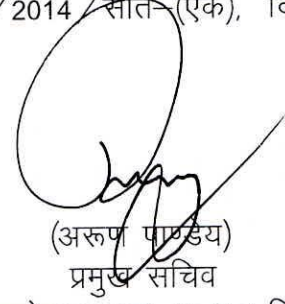 2014 सात-(एक),
(अरूण पाण्डेय)
प्रमुख सचिव